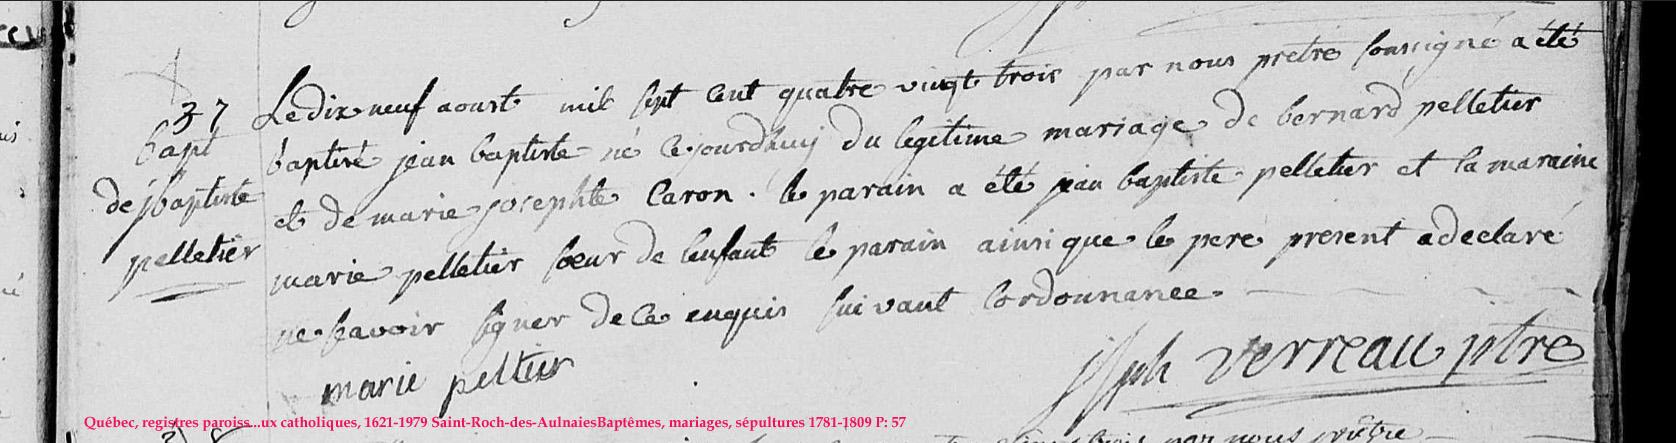 37
bapt
de jbaptiste
pelletier
Le dix neuf aoust mil sept cent quatre vingt trois par nous pretre soussigné a été
baptisé jean baptiste né cejourdhuy du legitime mariage de bernard pelletier
et de marie josephte Caron. le parain a été jean baptiste pelletier et la maraine
marie pelletier sœur de lenfant le parain ainsi que le pere present a declaré
ne savoir signer de ce enquis suivant lordonnance.
marie peltier
jsph verreau ptre
Québec, registres paroiss...ux catholiques, 1621-1979 Saint-Roch-des-AulnaiesBaptêmes, mariages, sépultures 1781-1809 P: 57
par nous prêtre